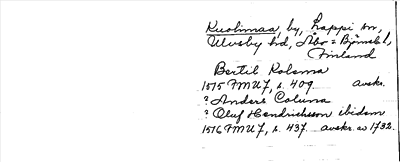 Kuolimaa, by, Lappi sn,
Ulvsby hd, Åbo = Björneb l,
Finland
Bertil Kolema
1515 FMU 7, s. 409. avskr.
? Anders Columa
? Oluf Hendrichsson ibidem
1516 FMU 7, s. 437. avskr. av 1732.